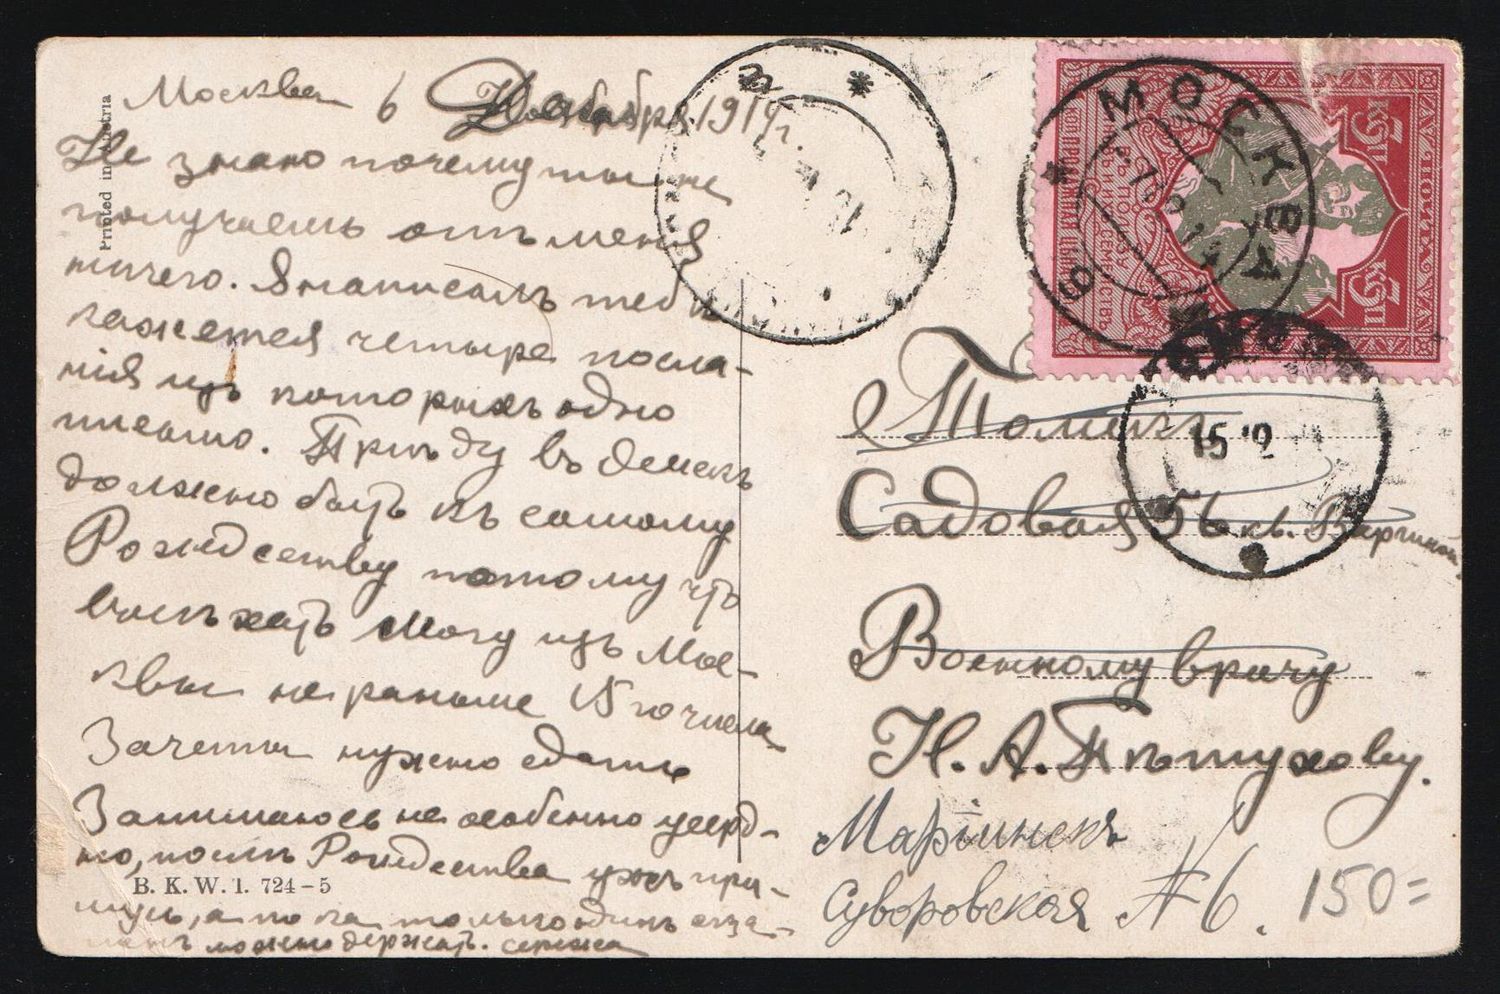 Москва 6 Декабря 1914 г.
Не знаю почему ты не
получаешь отъ меня
ничего. Я написалъ тебѣ
кажется четыре посла-
нія изъ которыхъ одно
письмо. Приѣду въ Омскъ
должно быть къ самому
Рождеству потому что
выѣхать могу изъ Мос-
квы не раньше 15го числа
Зачеты нужно сдать
Занимаюсь не особенно усерд-
но, послѣ Рождества ужъ при-
а пока только одинъ экза-
менъ можно держать. Сережа
Printed in Austria
B. K. W. I. 724-5
МОСКВА
15 12
5к
5к
Томскъ
Садовая 56 кв.
Военному врачу
Н. А. Пѣтухову.
Маріинскъ
Суворовская № 6.
150=